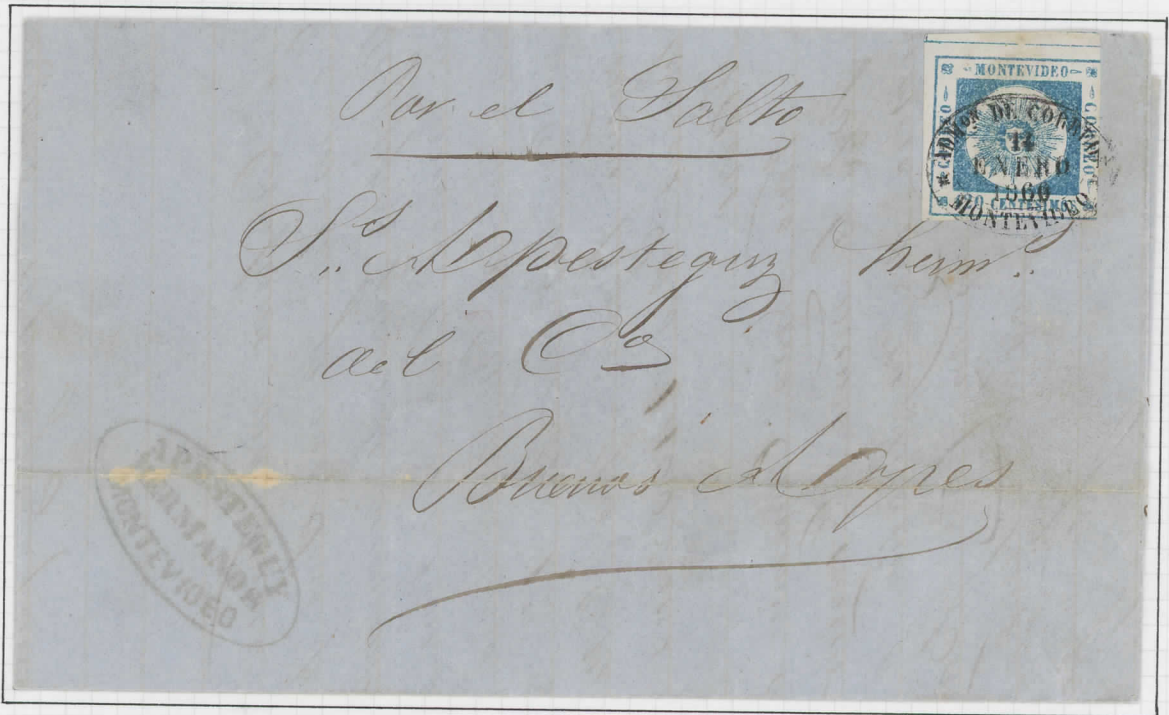 Por el Salto
MONTEVIDEO
CORREO
CORREO
CENTESIMOS
ADMON DE CORREOS
ENERO
1860
MONTEVIDEO
Srs Apesteguy herms
del Co
Buenos Ayres
APESTEGUY
HERMANOS
MONTEVIDEO